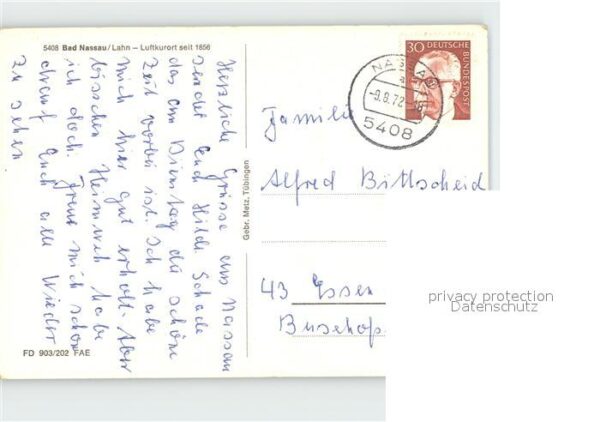 5408 Bad Nassau/Lahn – Luftkurort seit 1856
Herzliche Grüsse aus Nassau
sendet Euch Hilde. Schade
das am Dienstag die schöne
Zeit vorbei ist. Ich habe
mich hier gut erholt. Aber
bisschen Heimweh habe
ich doch. Freue mich schon
drauf Euch alle Wieder
zu sehen
FD 903/202 FAE
Gebr. Metz, Tübingen
30 DEUTSCHE BUNDESPOST
NASSAU
-9.8.72
5408
Familie
Alfred Bittscheid
43 Essen
privacy protection
Datenschutz